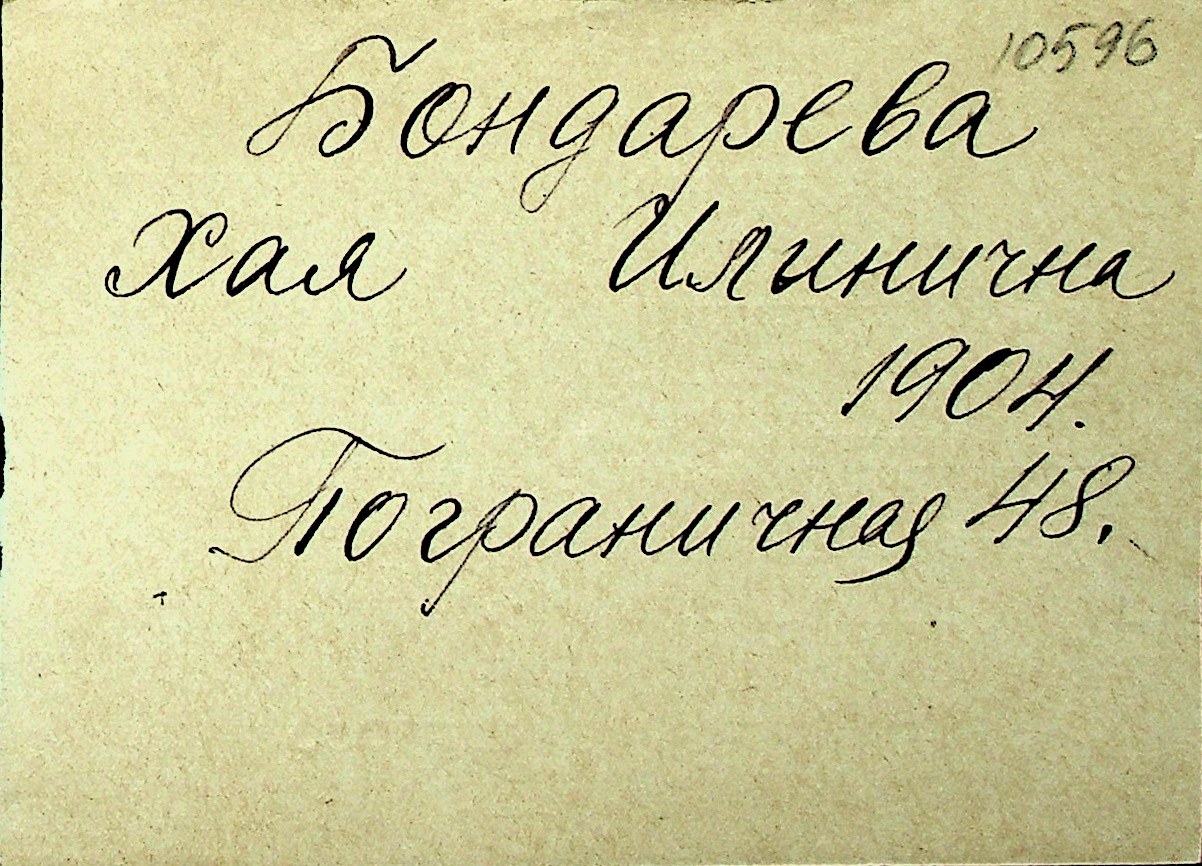 10596
Бондарева
Хая Илинична
1904.
Пограничная 48.